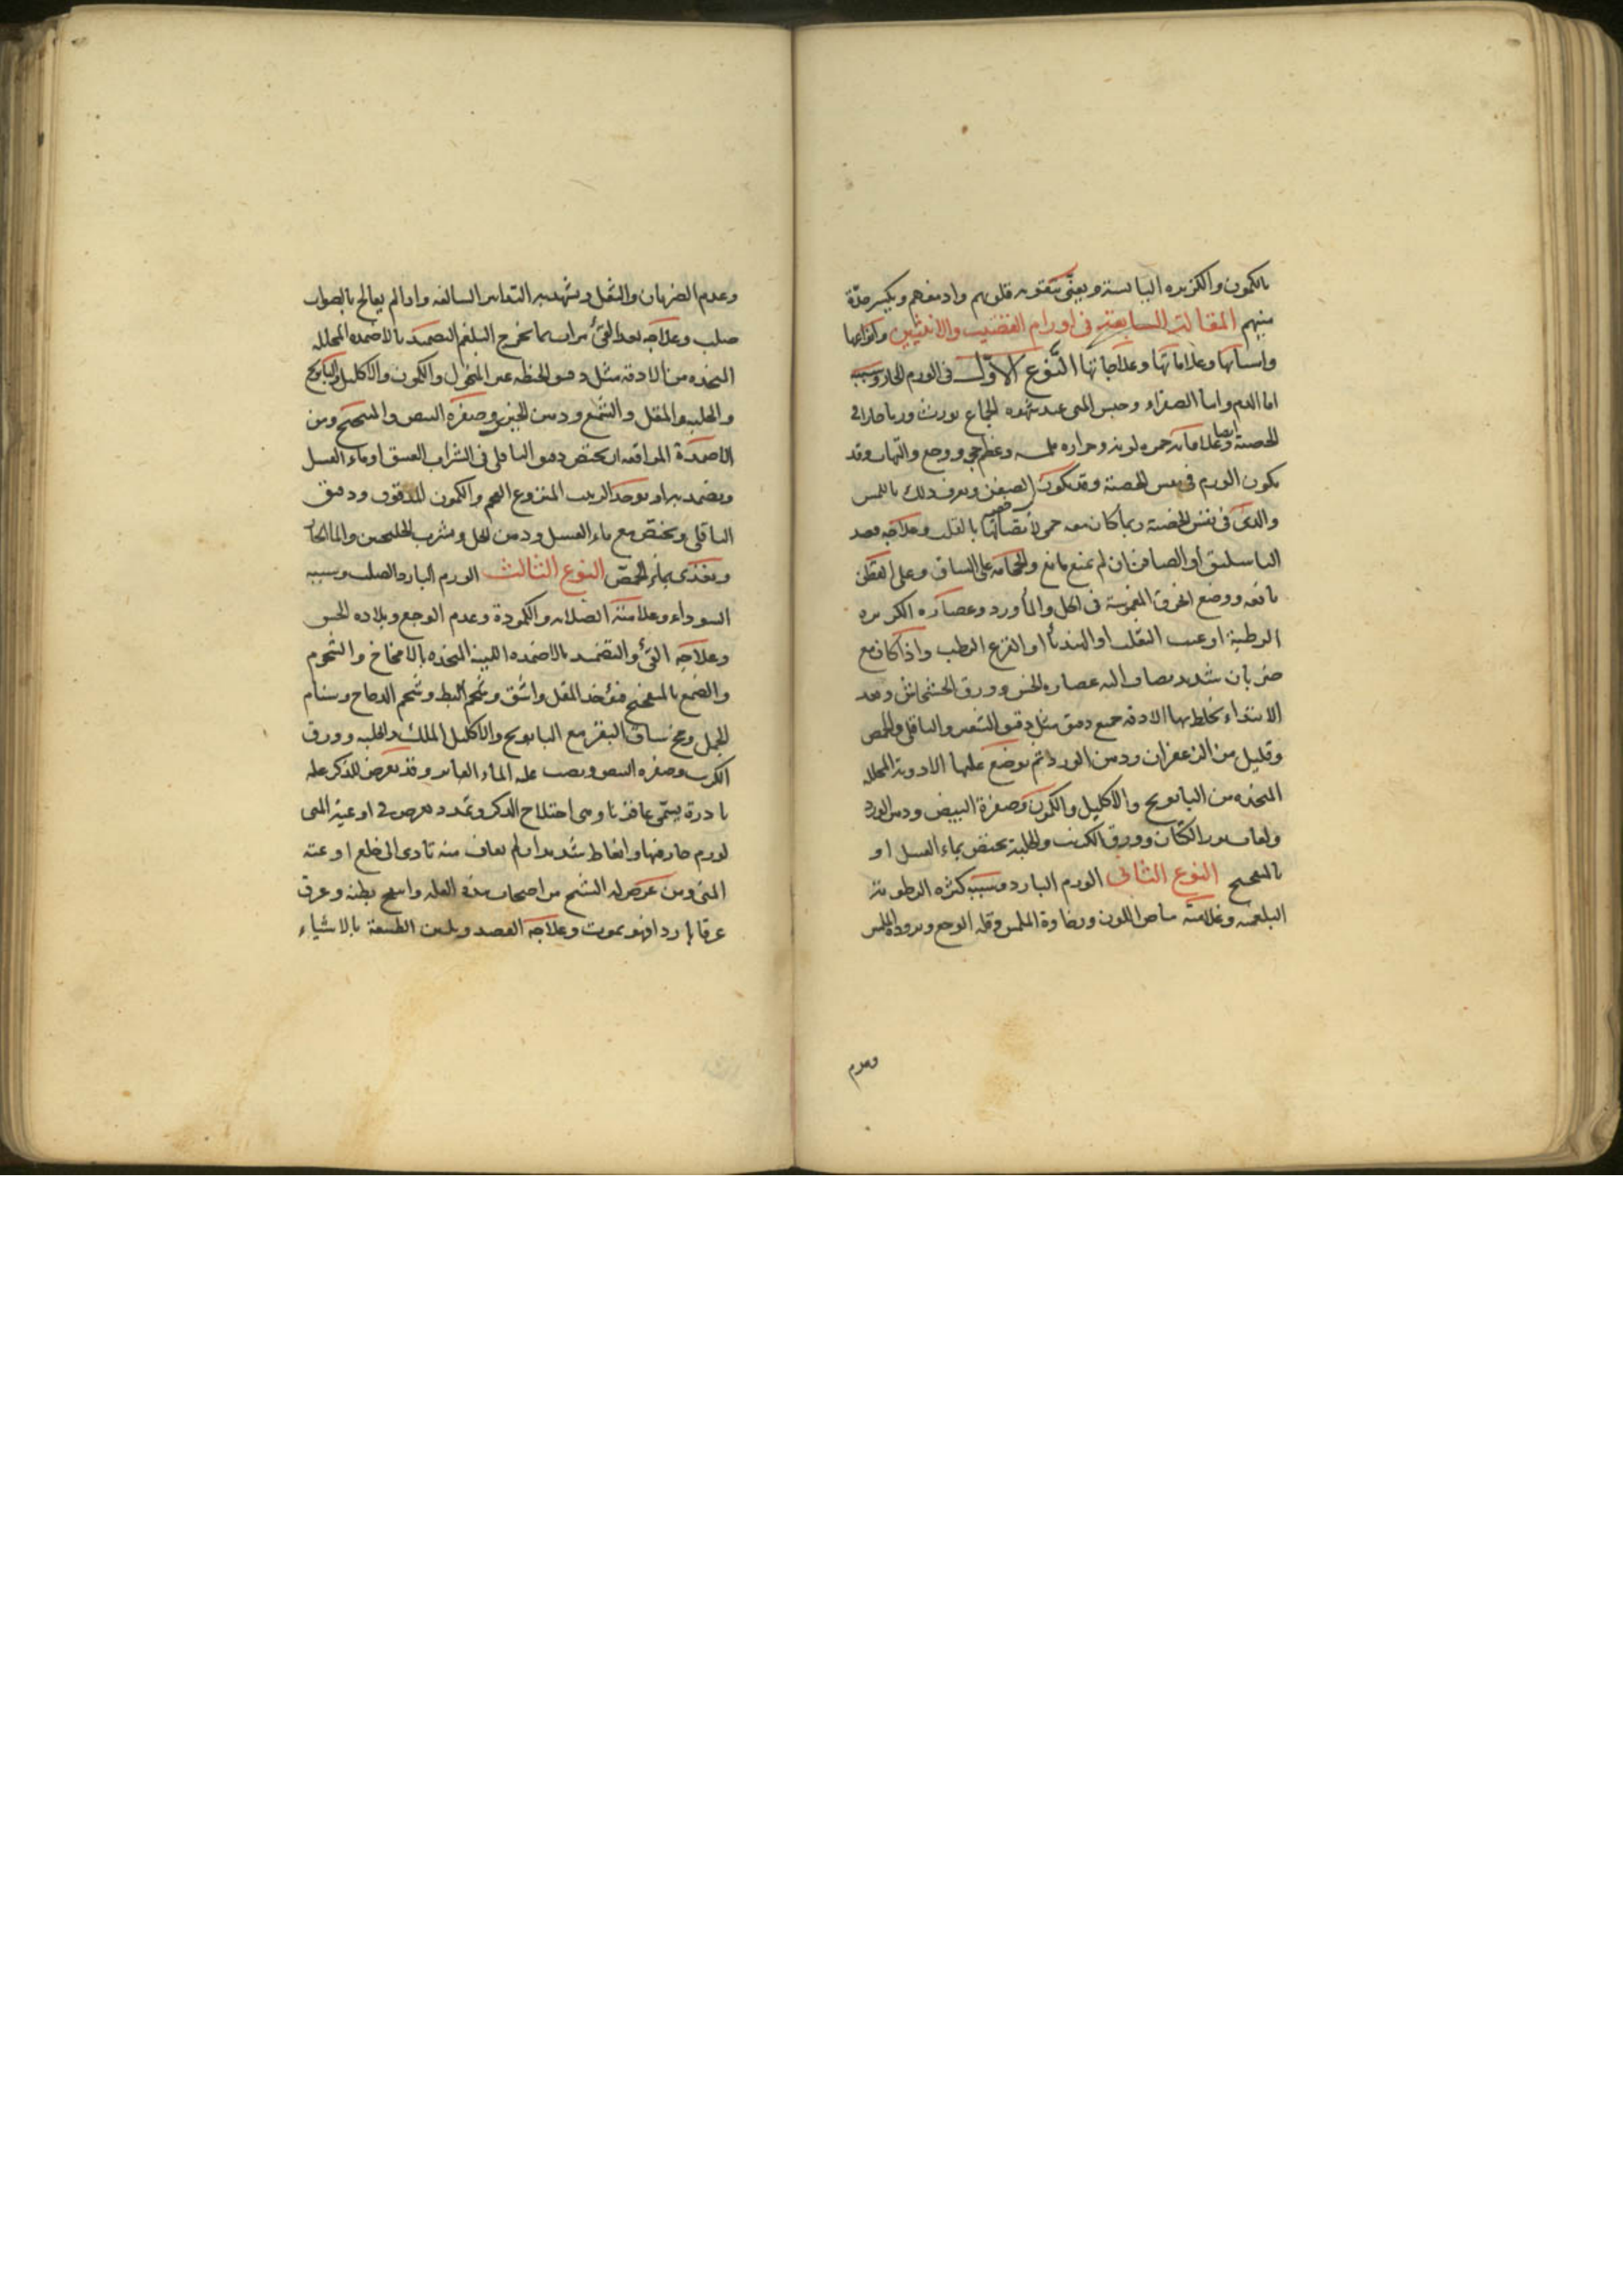 بالكمون والكزبره اليابسة ويعنى بتقويه قلوبهم وادمغتهم ويكسر حدّة
منيهم المقالة السابعة فى اورام القضيب والانثيين وانواعها
واسبابها وعلاماتها وعلاجاتها النّوع الاوّل فى الورم الحار وسببه
اما الدم واما الصفراء وحبس المنى عند شهوه الجماع يورث ورما حارا فى
الخصية ايضا وعلاماته حمره لونه وحراره ملمسه وعظم حجم ووجع والتهاب وقد
يكون الورم فى نفس الخصية وقد يكون فى الصفن ويعرف ذلك باللمس
والذى فى نفس الخصية ربما كان معه حمى لاتصالها بالقلب وعلاجه فصد
الباسليق او الصافن ان لم يمنع مانع والحجامة على الساق وعلى القطن
نافعه ووضع الخرق المغموسة فى الخل والماورد وعصاره الكزبره
الرطبة او عنب الثعلب او الهندبا او القرع الرطب واذا كان مع
ضربان شديد يضاف اليه عصاره الخس وورق الخشخاش وبعد
الابتداء يخلط بها الادقه جميع دقيق مثل دقيق الشعير والباقلى والحمص
وقليل من الزعفران ودهن الورد ثم يوضع عليها الادوية المحلله
المتخذه من البابونج والاكليل والكمون وصفرة البيض ودهن الورد
ولعاب بزر الكتان وورق الكرنب والحلبة يختص بماء العسل او
بالمبختج النوع الثانى الورم البارد وسببه كثره الرطوبة
البلغميه وعلامته بياض اللون ورخاوة الملمس وقله الوجع وبرودة الملمس
وعدم
وعدم الضربان والثقل ويشهد به التدابير السالفه واذا لم يعالج بالصواب
صلب وعلاجه بعد القئ مرات بما يخرج البلغم التضميد بالاضمده المحلله
المتخذه من الادقة مثل دقيق الحنطه غير المنخول والكمون والاكليل والبابونج
والحلبه والمقل والشمع ودهن الخيرى وصفرة البيض والمبختج ومن
الاضمدة الموافقه ان يختص دقيق الباقلى فى الشراب العتيق او ماء العسل
ويضمد به او يوخذ الزبيب المنزوع العجم والكمون المدقوق ودقيق
الباقلى ويختص مع ماء العسل ودهن الخل ويشرب الخلنجبين والماء الحار
ويغذى بماء الحمص النوع الثالث الورم البارد الصلب وسببه
السوداء وعلامته الصلابه والكمودة وعدم الوجع وبلاده الحس
وعلاجه القئ والتضميد بالاضمده اللينه المتخذه بالامخاخ والشحوم
والصمغ بالمبختج فيؤخذ المقل واشق وشحم البط وشحم الدجاج وسنام
الجمل ومخ ساق البقر مع البابونج والاكليل الملك والحلبه وورق
الكرنب وصفره البيض ويصب عليه الماء الفاتر وقد يعرض للذكر علة
نادرة يسمّى عافذيا وهى اختلاج الذكر وتمدد يعرض فى اوعية المنى
لورم حار فيها وانعاظ شديد وان لم يعاف منه تادى الى خلع اوعية
المنى ومن عرض له التشنج من اصحاب هذه العله وانتفخ بطنه وعرق
عرقا باردا فهو يموت وعلاجه الفصد وتليين الطبيعة بالاشياء